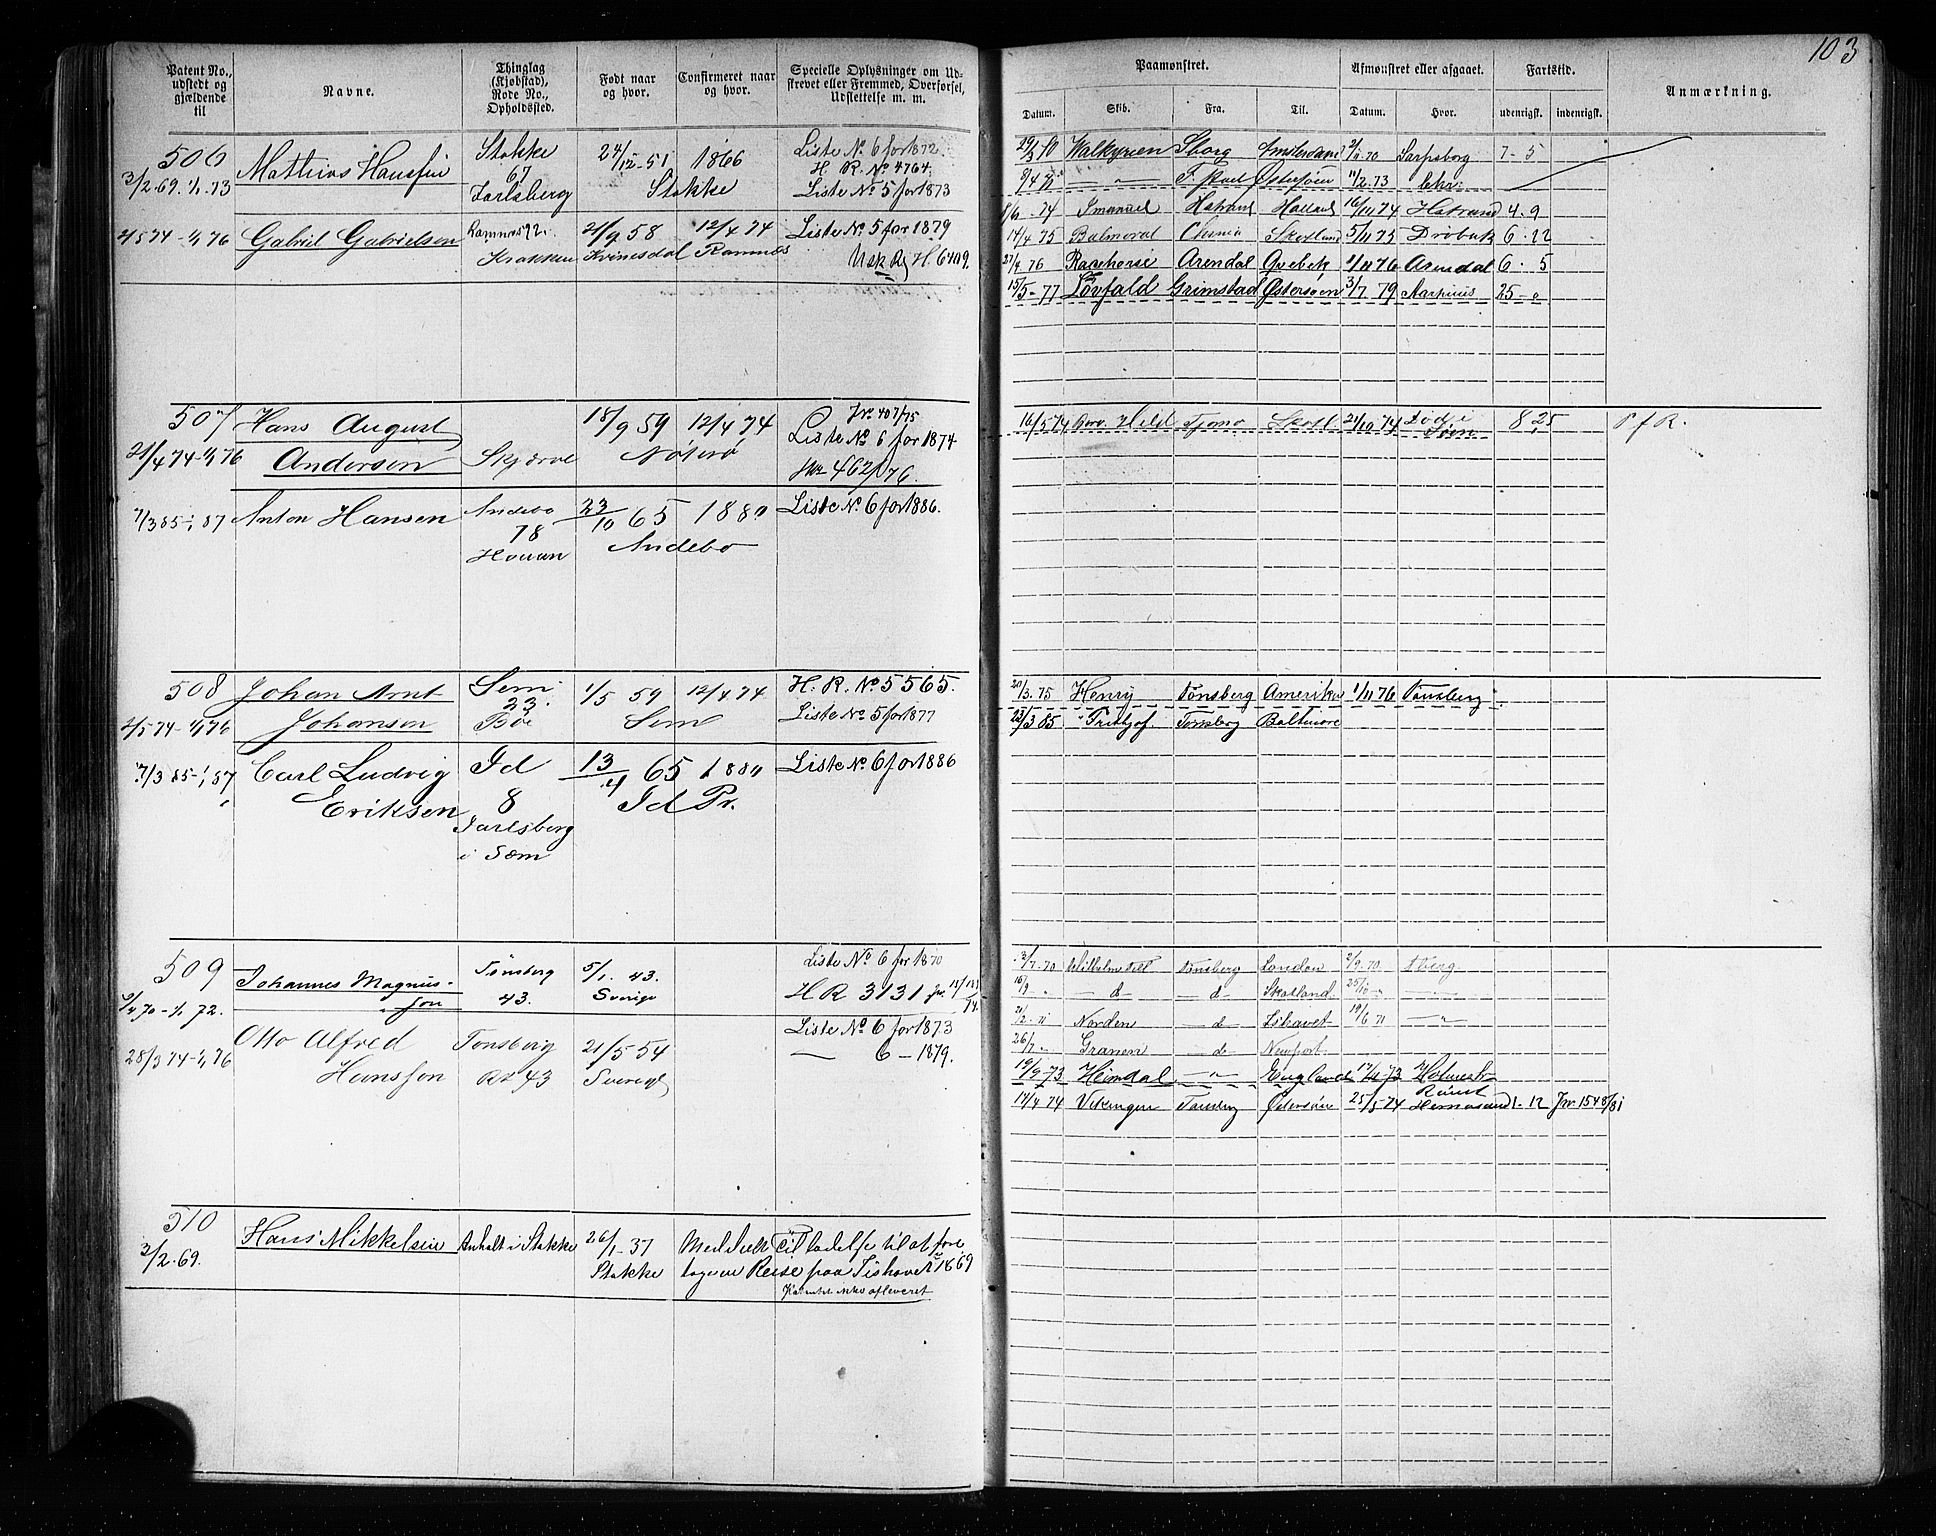 103
Patent No., udstedt og gjældende til
Navne.
Thinglag (Kjøbstad), Rode No., Opholdssted.
Født naar og hvor.
Confirmeret naar og hvor.
Specielle Oplysninger om Udstrevet eller Fremmed, Overførsel, Udslettelse m. m.
Paamønstret.
Afmønstret eller afgaaet.
Fartstid.
Anmærkning.
Datum.
Skib.
Fra.
Til.
Datum.
Hvor.
udenrigsk.
indenrigsk.
506
3/2 69. 1/1 73
Mathias Hanssen
Stokke
67
Jarlsberg
24/12 - 51
1866
Stokke
Liste No 6 for 1872.
H. R. No 4764.
Liste No 5 for 1873
29/3 70 Walkyrien Sborg Amsterdam 70 Sarpsborg 7 - 5
8/4 Østersøen 11/2 73
2/5 74 - 1/1 76
Gabriel Gabrielsen
Ramnæs 92.
Krakken
21/9 58
Kvinesdal
12/4 74
Ramnæs
Liste No 5 for 1879
H 6409.
8/6 74 Imanuel Holland 16/11 74 4. 9
14/4 75 Balmoral Skotland 5/11 75 Drøbak 6. 22
27/4 76 Racehorse Arendal Qvebek 1/11 76 Arendal 6. 5
15/5 - 77 Løvfald Grimstad Østersøen 3/7 79 Aarhuus 25 -
507
21/4 74 - 1/1 76
Hans August
Andersen
Skjærve
18/9 59
12/4 74
Nøterø
Jr 407/75
Liste No 6 for 1874
Jr 462/76.
16/5 74 Hild Tjømø Skotl. 21/10 74 Død i
Søen 8 25 P f R.
7/3 85 - 1/1 87
Anton Hansen
Andebo
78
Houan
23/10 65
1880
Andebo
Liste No 6 for 1886.
508
2/5 74 - 1/1 76
Johan Arnt
Johansen
Sem
23.
Bøe
1/5 59
12/4 74
Sem
H. R. No 5565.
Liste No 5 for 1877
20/3. 75 Henry Tønsberg Amerika 1/11 76 Tønsberg
23/3 85 Frithjof. Tønsberg Baltimore
7/3 85 - 1/1 87
Carl Ludvig
Eriksen
Id
8
Jarlsberg
i Sæm
13/4 65
1880
Id Pr.
Liste No 6 for 1886
509
2/4 70 - 1/1 72.
Johannes Magnus-
son
Tønsberg
43.
5/1. 43.
Sverige
Liste No 6 for 1870
H R 3131
3/7. 70 Wilhelm Tell Tønsberg London 2/9. 70 Tberg
16/9 " — d — d Skotland. 25/10 "
21/2. 71 Norden — d Ishavet 19/6 71 — " —
26/7 - Granen — d Newport.
28/3 74 - 1/1 76
Otto Alfred
Hanssen
Tønsberg
43
21/5 54
Sverige
Liste No 6 for 1873
— 6 - 1879.
19/9 73 Heimdal — " — England 73
17/4 74 Vikingen Tønsberg Østersøen 25/5 74 Rømt
Hernøsand 1. 12 Jr. 1548/81
510
3/2. 69.
Hans Mikkelsen
Anholt i Stokke
26/1 - 37
Stokke
Meddelt Tilladelse til at fore
tage en Reise paa Ishavet i 1869
ikke afleveret